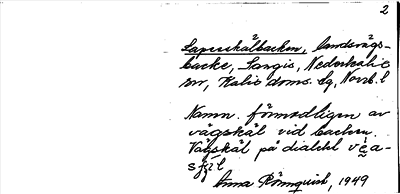 2
Saperskälbacken, landsvägs-
backe, Sangis, Nederkalix
sn, Kalix doms. lg, Norrb. l
Namn. förmodligen av
vägskäl vid backen.
Vägskäl på dialekt
Anna Rönnquist, 1949